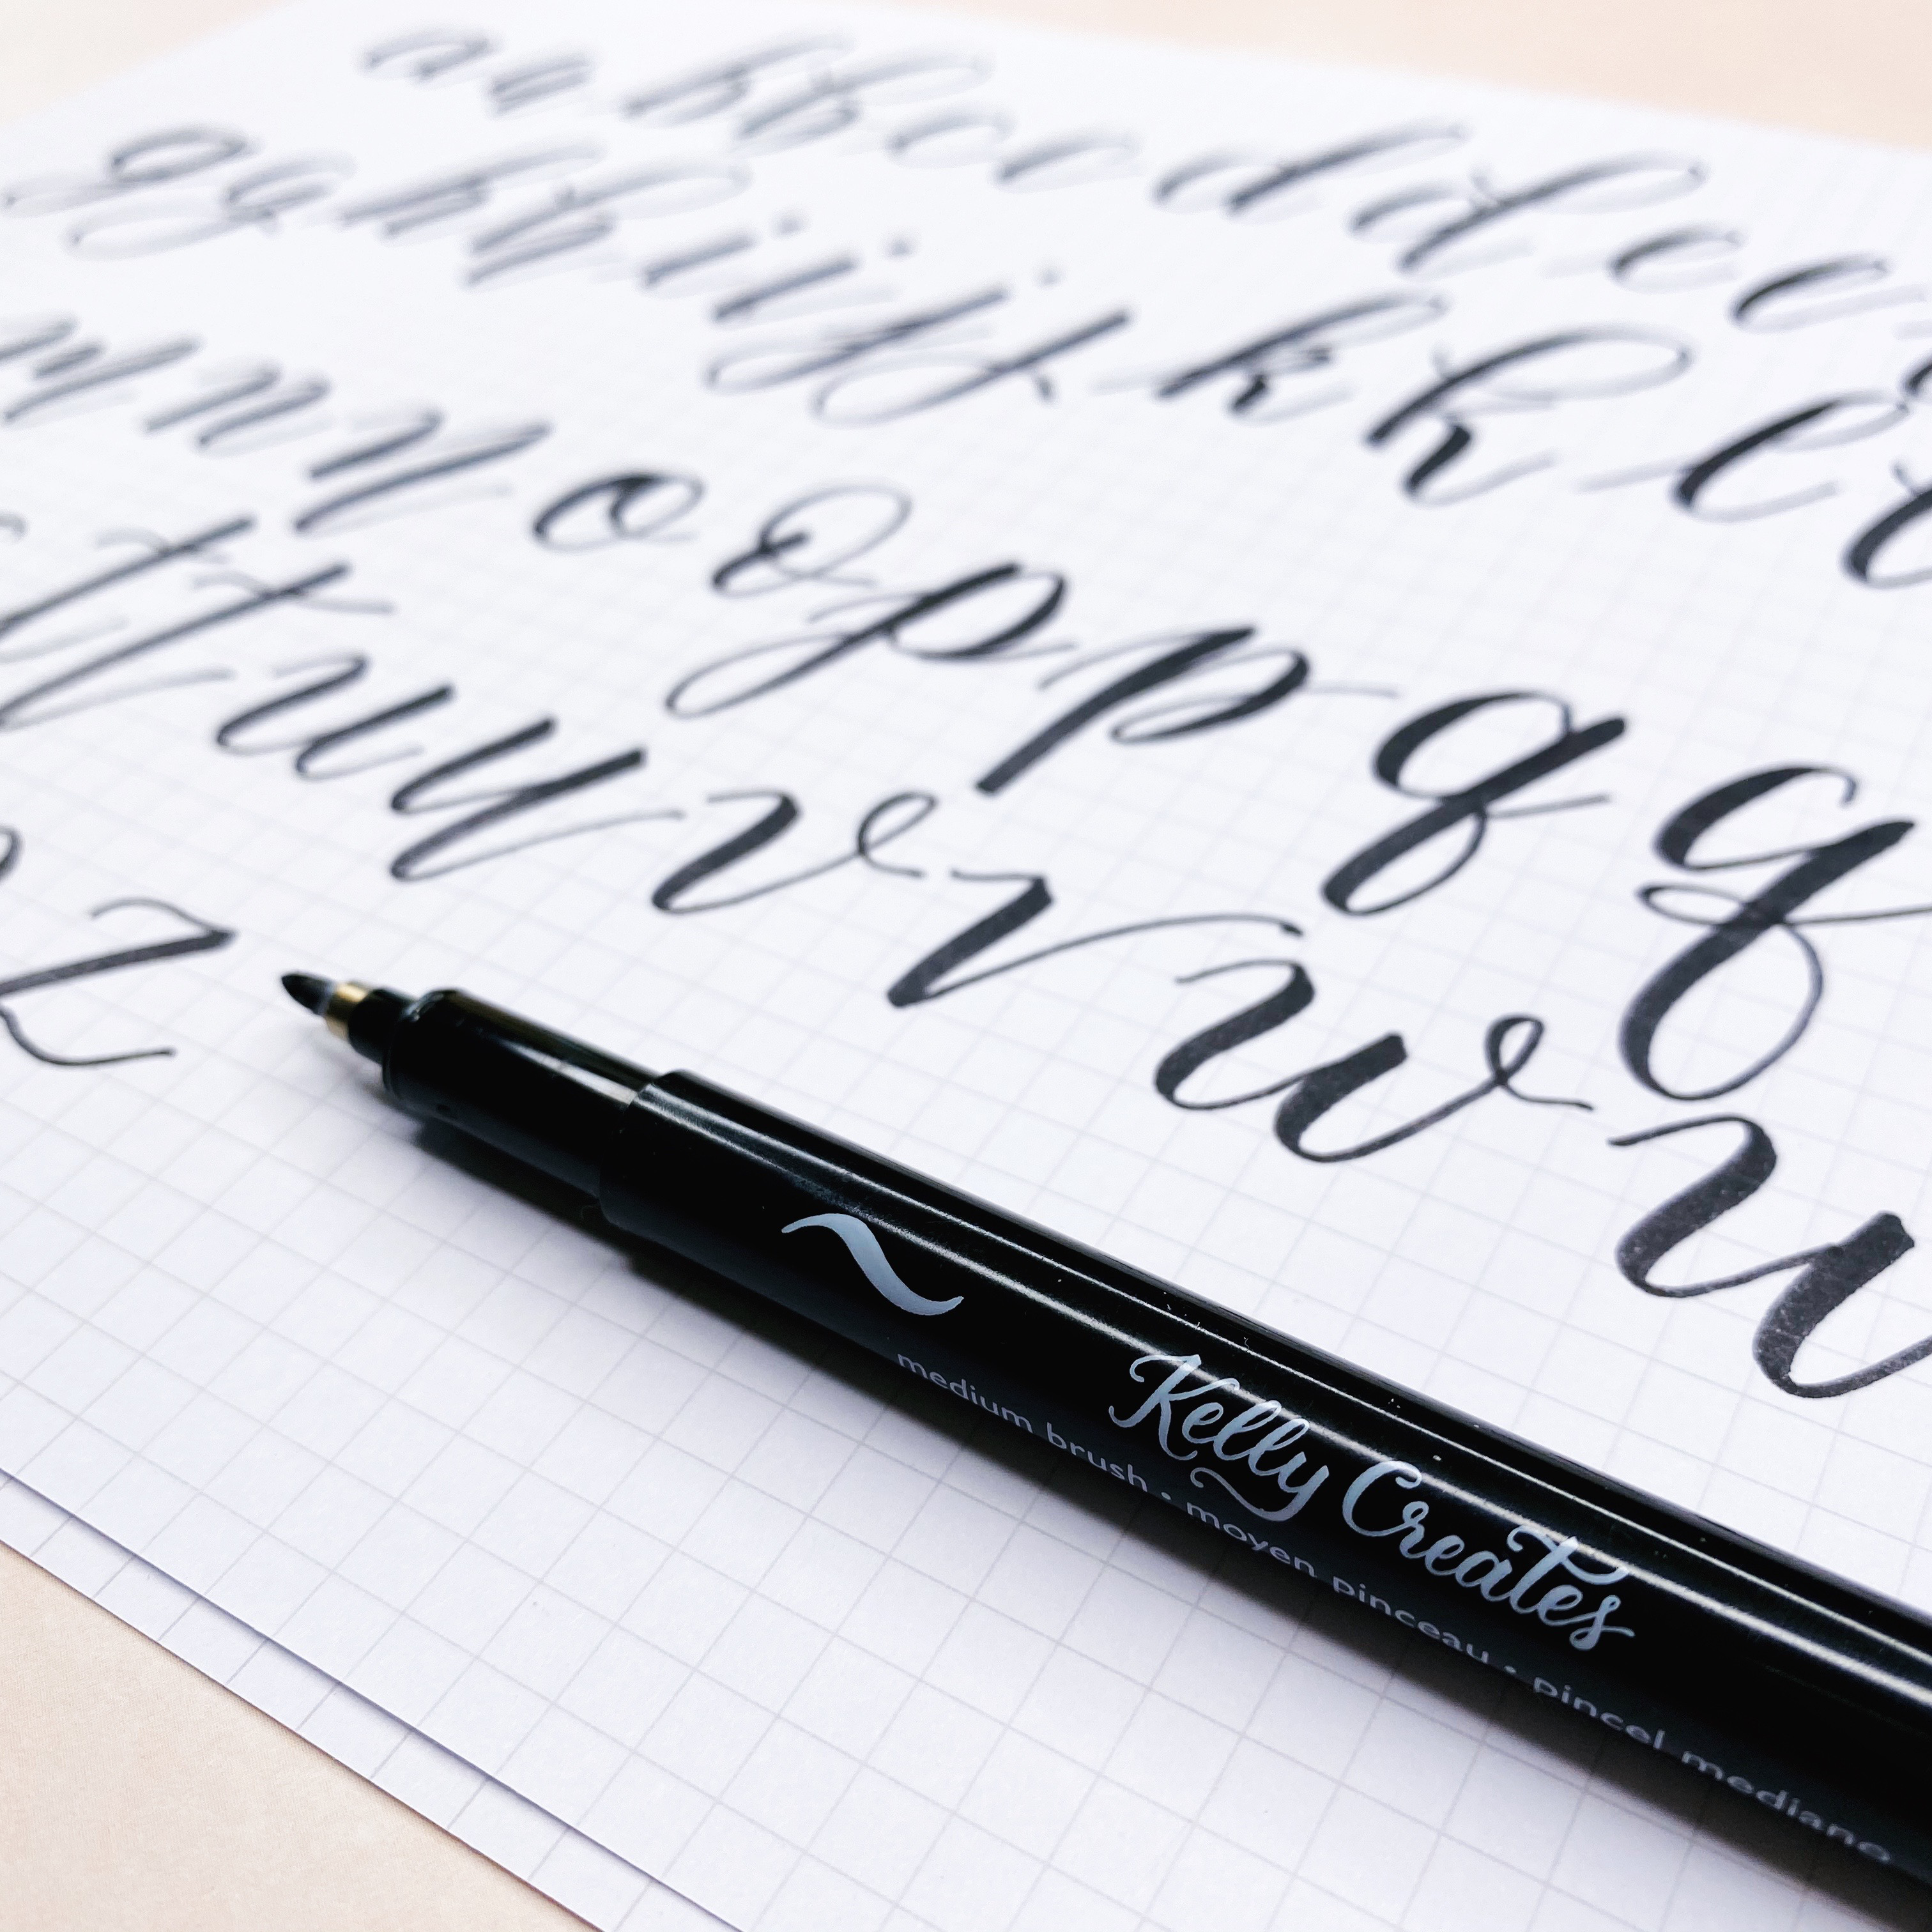 a a b b c c d d e e
g g h h i i j j k k l l
m n n o o p p q q
t t u u v v w w
z
Kelly Creates
medium brush • moyen pinceau • pincel mediano